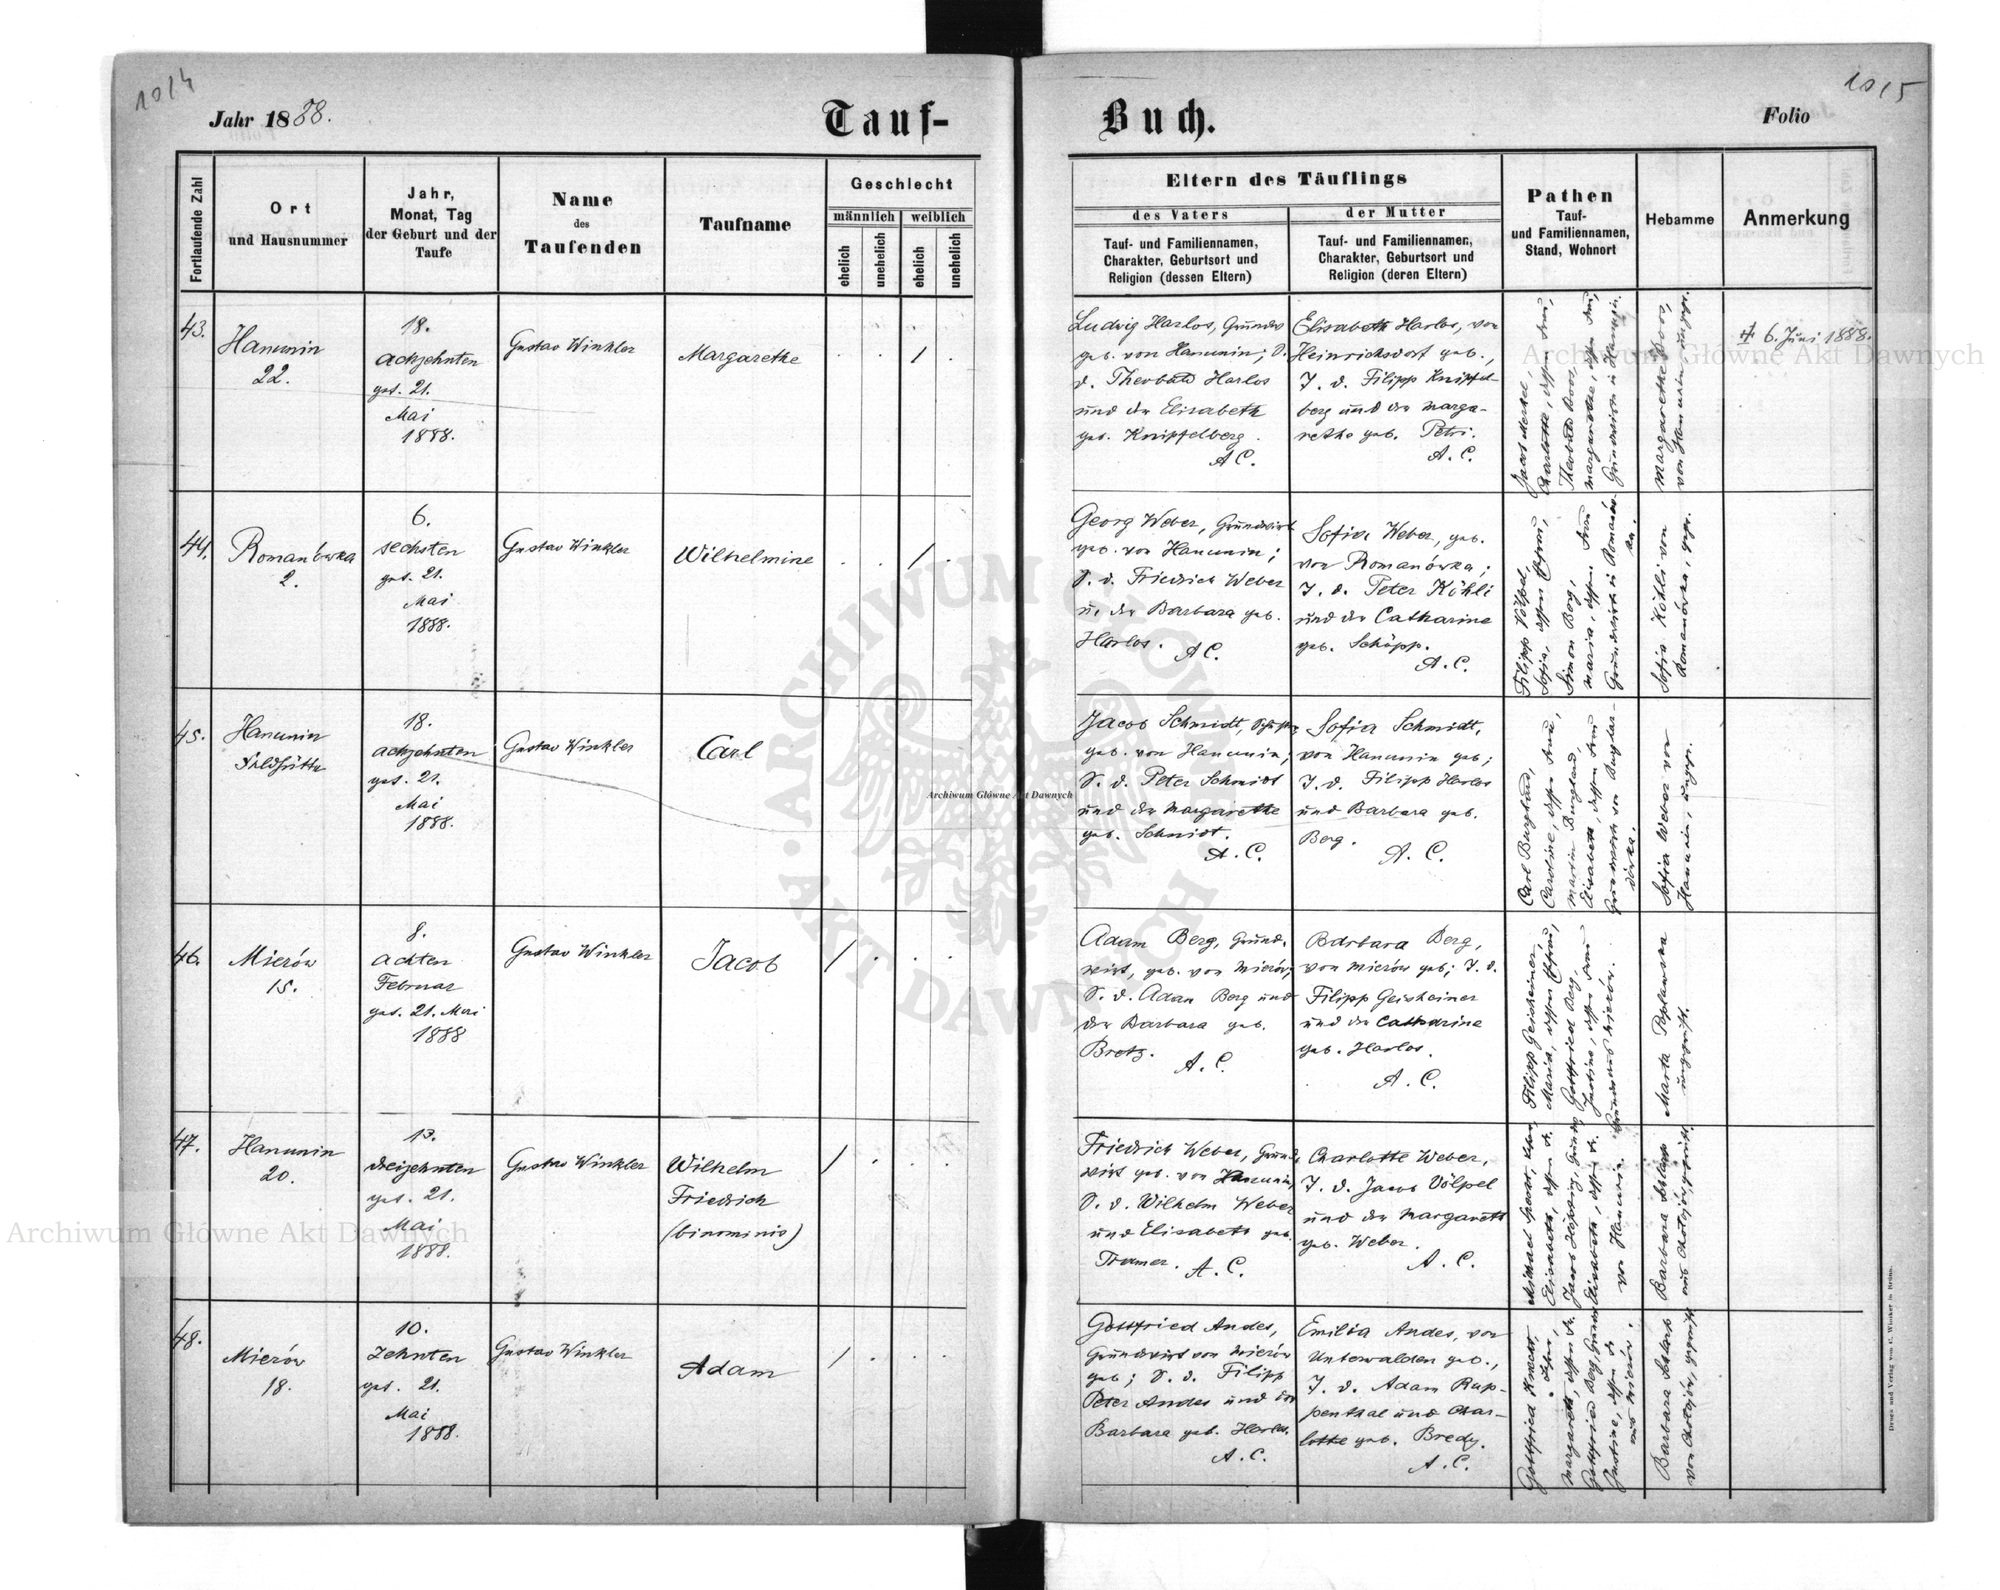 1014
1015
Jahr 1888.
Tauf-
Buch.
Folio
Fortlaufende Zahl
Ort
und Hausnummer
Jahr,
Monat, Tag
der Geburt und der
Taufe
Name
des
Taufenden
Taufname
Geschlecht
männlich
weiblich
ehelich
unehelich
ehelich
unehelich
Eltern des Täuflings
des Vaters
Tauf- und Familiennamen,
Charakter, Geburtsort und
Religion (dessen Eltern)
der Mutter
Tauf- und Familiennamen,
Charakter, Geburtsort und
Religion (deren Eltern)
Pathen
Tauf-
und Familiennamen,
Stand, Wohnort
Hebamme
Anmerkung
43.
Hanunin
22.
18.
achzehnten
get. 21.
Mai
1888.
Gustav Winkler
Margarethe
Ludwig Harlos, Grundw
geb. von Hanunin; S.
d. Theobald Harlos
und der Elisabeth
geb. Knipfelberg.
A C.
Elisabeth Harlos, von
Heinrichsdorf geb.,
T. d. Filipp Knipfel-
berg und der Marga-
rethe geb. Petri.
A. C.
Jacob Merkel,
Charlotte, dessen Frau,
Theobald Boos,
Margarethe, dessen Frau,
Grundwirte in Hanunin.
Margarethe Boos,
von Hanunin, ungepr.
† 6. Juni 1888.
44.
Romanówka
2.
6.
sechsten
get. 21.
Mai
1888.
Gustav Winkler
Wilhelmine
Georg Weber, Grundwirt
geb. von Hanunin;
S. d. Friedrich Weber
u. der Barbara geb.
Harlos. A C.
Sofia Weber, geb.
von Romanówka;
T. d. Peter Köhli
und der Catharine
geb. Schöpp.
A. C.
Filipp Völpel,
Sofia, dessen Ehefrau,
Simon Berg,
Maria, dessen Frau
Grundwirte in Romanów-
ka.
Sofia Köhli von
Romanówka, gepr.
45.
Hanunin
Feldhütte
18.
achzehnten
get. 21.
Mai
1888.
Gustav Winkler
Carl
Jacob Schmidt,
geb. von Hanunin;
S. d. Peter Schmidt
und der Margarethe
geb. Schmidt.
A. C.
Sofia Schmidt,
von Hanunin geb;
T. d. Filipp Harlos
und Barbara geb.
Berg.
A. C.
Carl Burghard,
Caroline, dessen Frau,
Martin Burghard,
Elisabeth, dessen Frau
Grundwirte von
Sofia Weber von
Hanunin, ungepr.
46.
Mierów
15.
8.
achten
Februar
get. 21. Mai
1888
Gustav Winkler
Jacob
Adam Berg, Grund-
wirt, geb. von Mierów;
S. d. Adam Berg und
der Barbara geb.
Bretz.
A. C.
Barbara Berg,
von Mierów geb; T. d.
Filipp Geisheimer
und der Catharina
geb. Harlos.
A. C.
Filipp Geisheimer,
Maria, dessen Ehefrau,
Gottfried Berg,
Justine, dessen Frau
Grundw. aus Mierów.
Marta Poplawska
ungeprüft.
47.
Hanunin
20.
13.
dreizehnten
get. 21.
Mai
1888.
Gustav Winkler
Wilhelm
Friedrich
(binominis)
Friedrich Weber, Grund-
wirt geb. von Hanunin,
S. d. Wilhelm Weber
und Elisabeth geb.
Tramer. A. C.
Charlotte Weber,
T. d. Jacob Völpel
und der Margareth
geb. Weber.
A. C.
Elisabeth, dessen Fr.
von Hanunin.
Barbara
aus Chołojów, geprüft
48.
Mierów
18.
10.
zehnten
get. 21.
Mai
1888.
Gustav Winkler
Adam
Gottfried Andes,
Grundwirt von Mierów
geb; S. d. Filipp
Peter Andes und der
Barbara geb. Harlos.
A. C.
Emilia Andes, von
Unterwalden geb.,
T. d. Adam Rup-
penthal und Char-
lotte geb. Bredy.
A. C.
Gottfried Knecht,
Margareth, dessen Fr.
Gottfried Berg,
Justine, dessen Fr.
aus Mierów.
Barbara
von Chołojów, geprüft
Druck und Verlag von C. Winiker in Brünn.
Archiwum Główne Akt Dawnych
Archiwum Główne Akt Dawnych
Archiwum Główne Akt Dawnych
ARCHIWUM GŁÓWNE AKT DAWNYCH